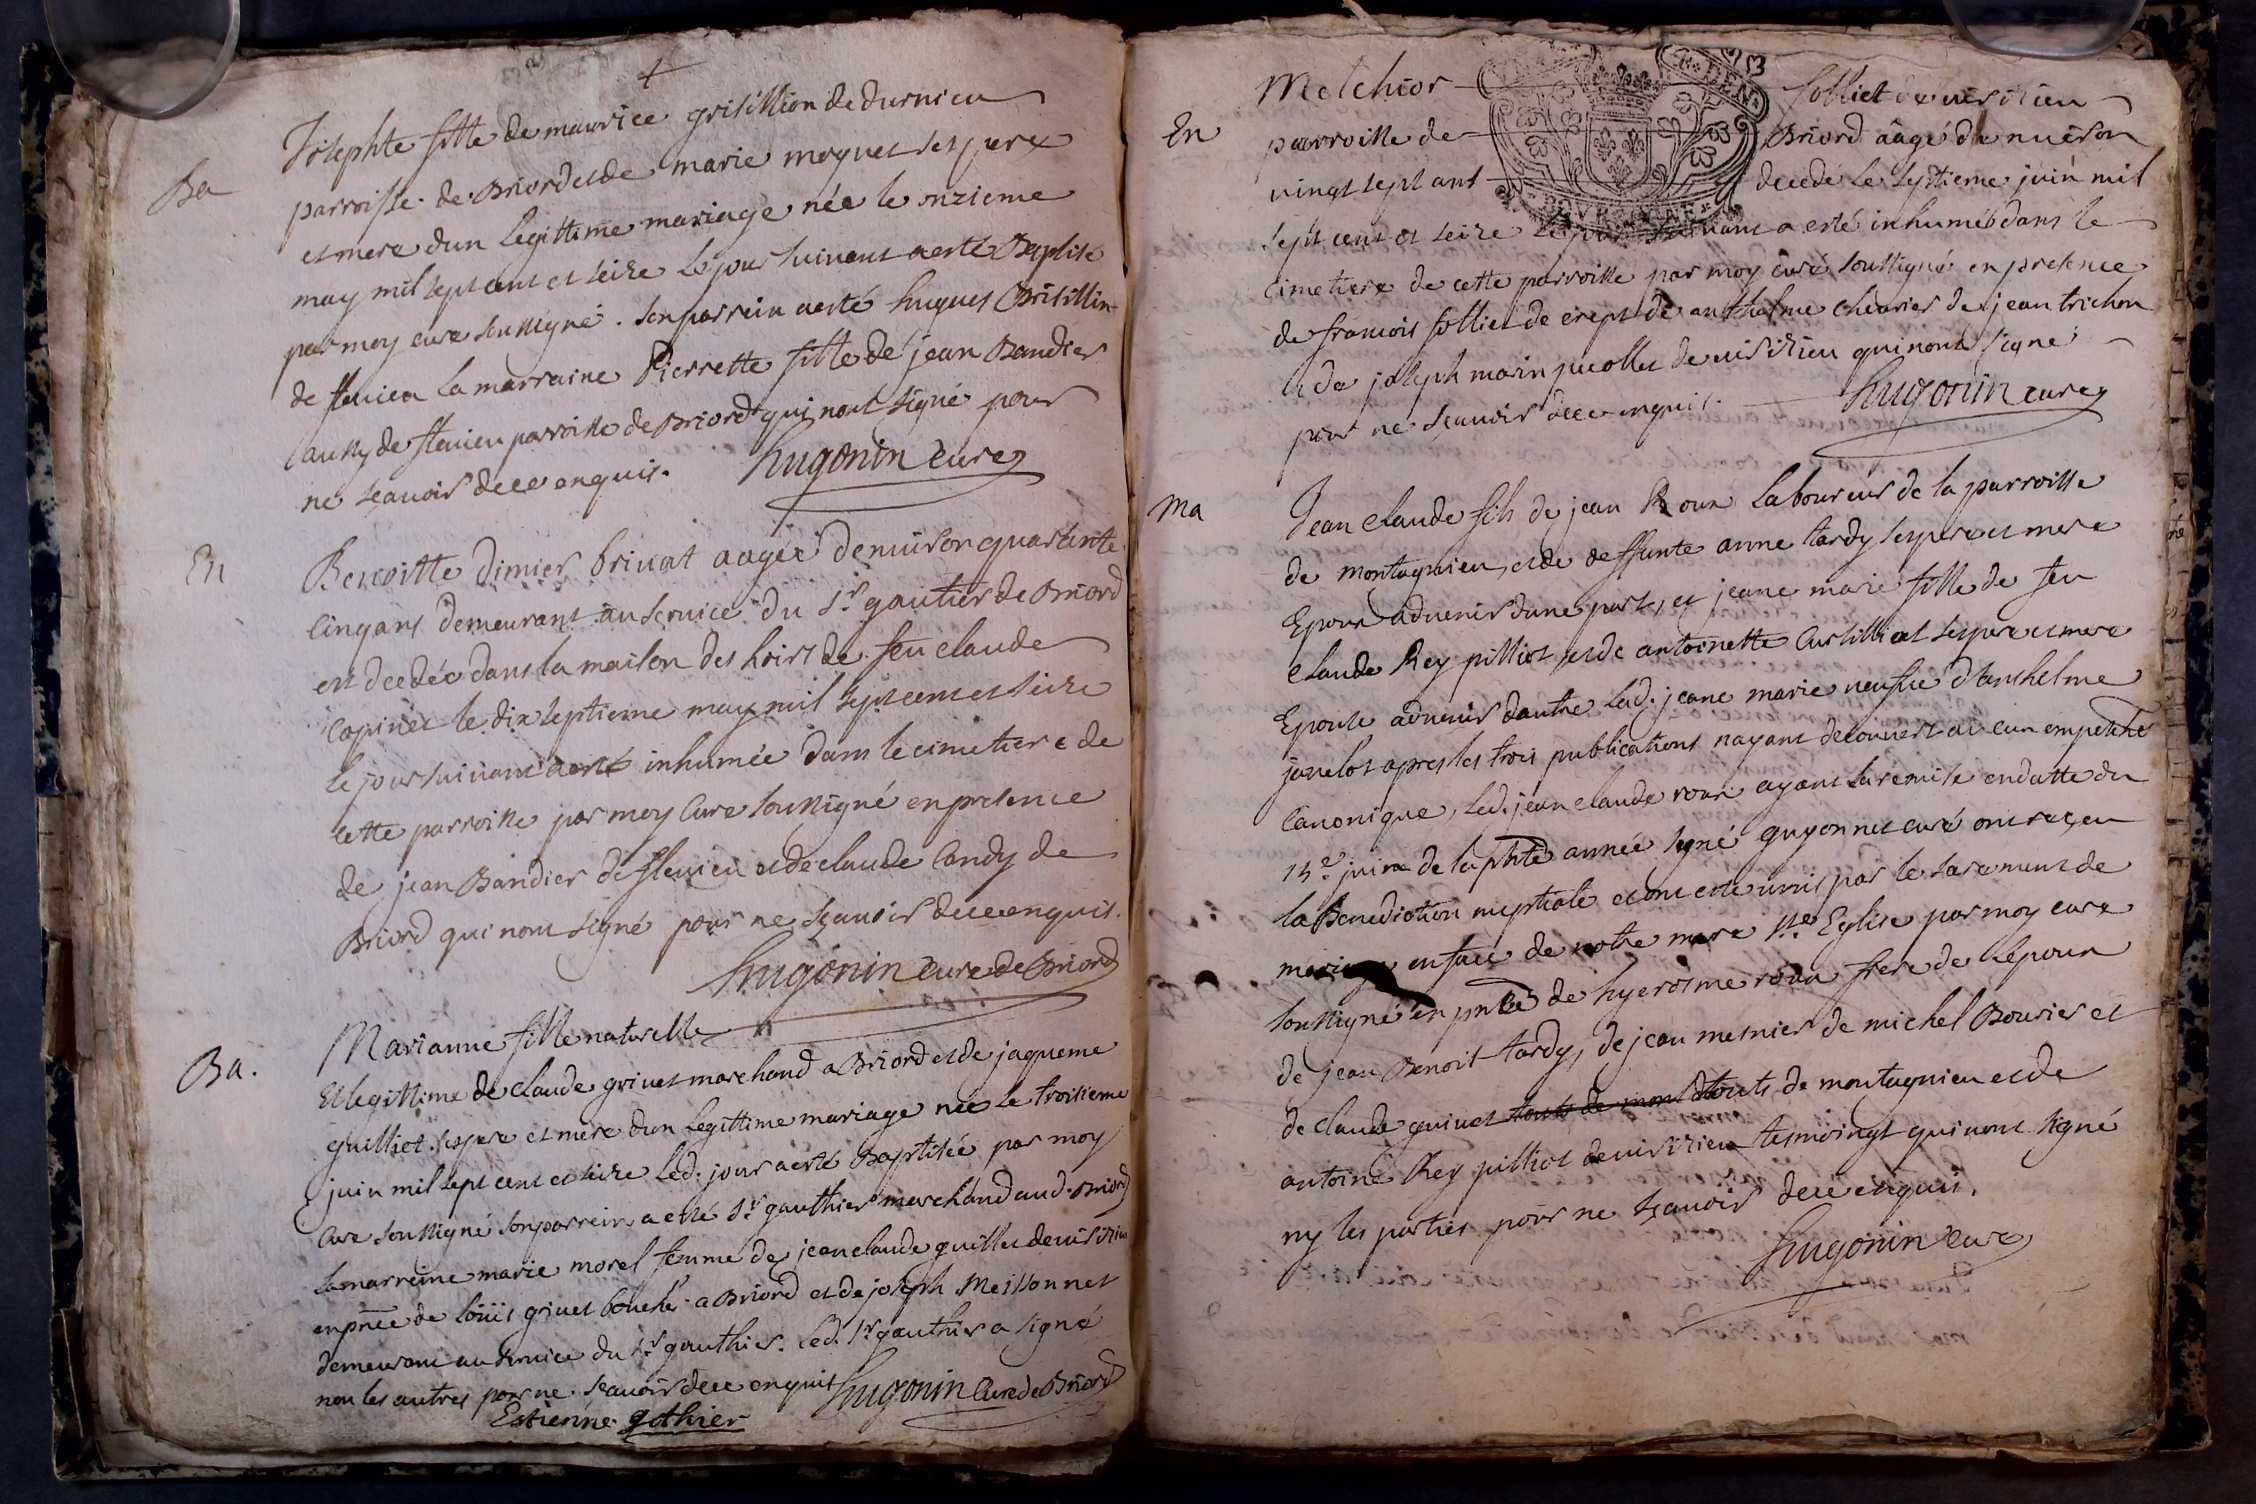 Ba
Josephte fille de maurice grisillion de durnieu
parroisse de Briord et de marie moynet ses pere
et mere dun legittime mariage née le onzieme
may mil sept cent et seize le jour suivant a esté Baptisé
par moy curé soussigné. son parrein a esté hugues Grisillin
de flevieu la marraine Pierrette fille de jean Bandier
aussy de flevieu parroisse de Briord qui nont signé pour
ne scavoir de ce enquis. hugonin curé
En
Benoitte dimier brivat aagée denviron quarante
cinq ans demeurant au service du Sr gautier de Briord
est decedée dans la maison des hoirs de feu claude
Copinet le dix septieme may mil sept cent et seize
le jour suivant a esté inhumée dans le cimetiere de
cette parroisse par moy Curé soussigné en presence
de jean Bandier de flevieu et de claude Candy de
Briord qui nont signé pour ne scavoir de ce enquis.
hugonin Curé de Briord
Ba.
Marianne fille naturelle
Et legittime de claude grivet marchand a Briord et de jaqueme
guilliet ses pere et mere dun legittime mariage née le troisieme
juin mil sept cent et seize led. jour a esté Baptisée par moy
Curé soussigné son parrein a esté Sr gauthier marchand aud. Briord
la marreine marie morel femme de jean claude guillet de virisieu
en pnce de loüis grivet bouché a Briord et de joseph Meissonnet
demeurant au service du Sr gauthier. led. Sr gauthier a signé
non les autres pour ne scavoir de ce enquis hugonin Curé de Briord
Estienne gothier
En
Melchior folliet de virisieu
parroisse de Briord aagé de nviron
vingt sept ans decedé le septieme juin mil
sept cent et seize le jour suivant a esté inhumé dans le
cimetiere de cette parroisse par moy curé soussigné en presence
de francois folliet de crept de anthelme chevrier de jean trichon
et de joseph marin pucollet de virisieu qui nont signé
pour ne scavoir de ce enquis. hugonin curé
Ma
Jean claude fils de jean Roux laboureur de la parroisse
de montagnieu, et de deffunte anne tardy ses pere et mere
Epoux advenir dune part, et jeane marie fille de feu
claude Rey pilliot, et de antoinette Curtilliet ses pere et mere
Epouse advenir dautre lad. jeane marie veufve d'anthelme
javelot apres les trois publications nayant decouvert aucun empeche
Canonique, led. jean claude roux ayant sa remise en datte du
15e juin de la pnte année signé guyonnet curé ont reçeu
la Benediction nuptiale et ont esté unis par le sacrement de
mariage en face de notre mere Ste Eglise par moy curé
soussigné en pnce de hyerosme roux frere de lepoux
de jean Benoit tardy, de jean mesnier de michel Bouvier et
de claude guinet touts de mont touts de montagnieu et de
antoine Rey pilliot de virisieu tesmoingt qui nont signé
ny les parties pour ne scavoir de ce enquis.
hugonin curé